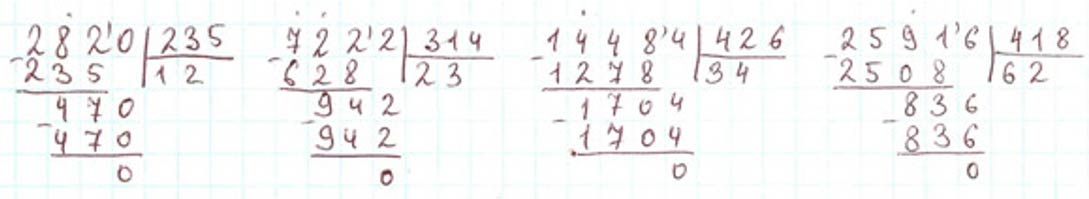 282'0 235
-235 12
470
-470
0
722'2 314
-628 23
942
-942
0
1448'4 426
-1278 34
1704
-1704
0
2591'6 418
-2508 62
836
-836
0